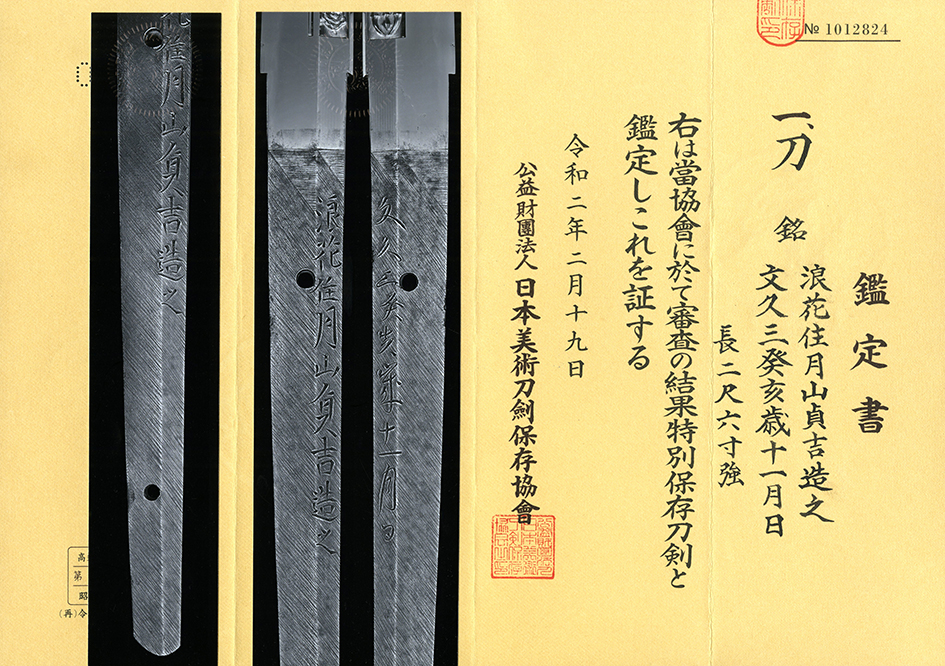 № 1012824
鑑定書
一、刀 銘 浪花住月山貞吉造之
文久三癸亥歳十一月日
長二尺六寸強
右は當協會に於て審査の結果特別保存刀剣と
鑑定しこれを証する
令和二年二月十九日
公益財團法人日本美術刀劍保存協會
文久三癸亥歳十一月日
浪花住月山貞吉造之
花住月山貞吉造之
高
第
昭
(再)令